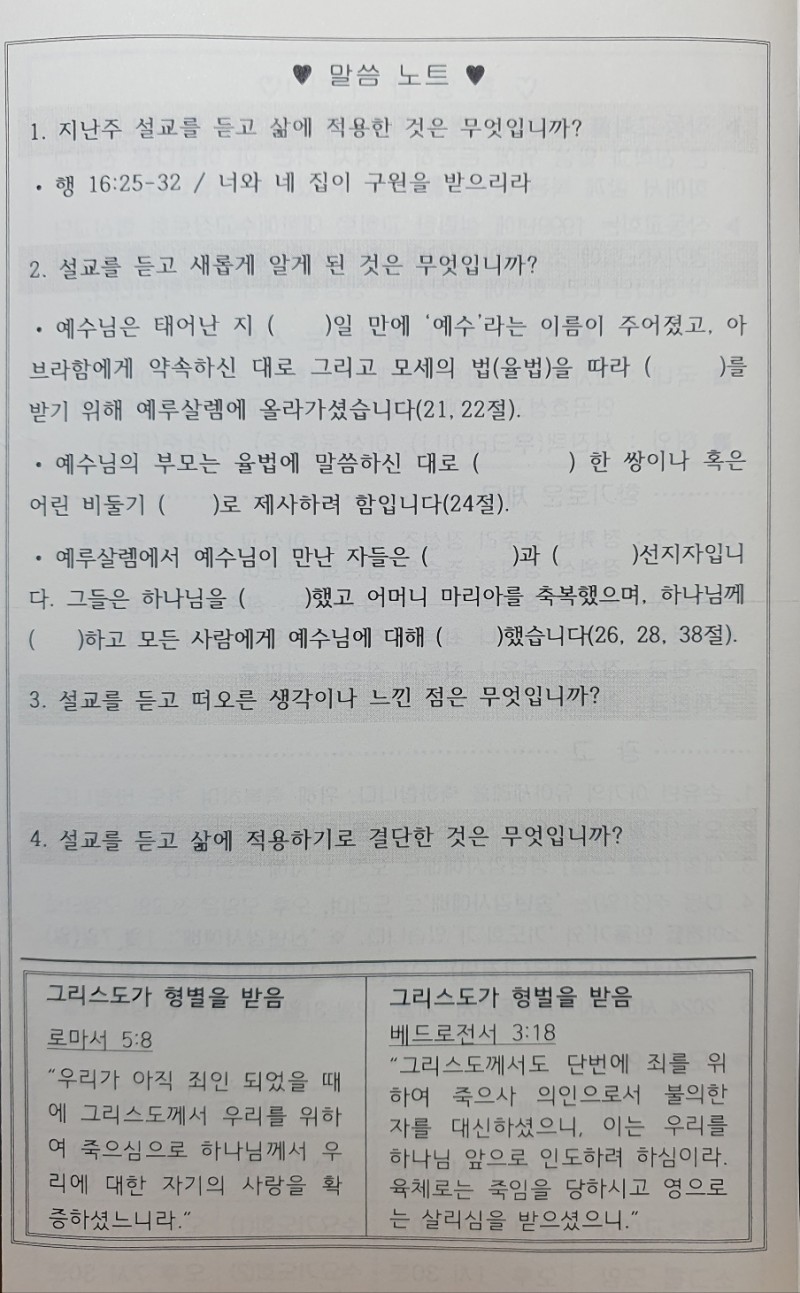 ♥ 말씀 노트 ♥
1. 지난주 설교를 듣고 삶에 적용한 것은 무엇입니까?
· 행 16:25-32 / 너와 네 집이 구원을 받으리라
2. 설교를 듣고 새롭게 알게 된 것은 무엇입니까?
· 예수님은 태어난 지 (      )일 만에 ‘예수’라는 이름이 주어졌고, 아
브라함에게 약속하신 대로 그리고 모세의 법(율법)을 따라 (        )를
받기 위해 예루살렘에 올라가셨습니다(21, 22절).
· 예수님의 부모는 율법에 말씀하신 대로 (          ) 한 쌍이나 혹은
어린 비둘기 (      )로 제사하려 함입니다(24절).
· 예루살렘에서 예수님이 만난 자들은 (          )과 (        )선지자입니
다. 그들은 하나님을 (       )했고 어머니 마리아를 축복했으며, 하나님께
(     )하고 모든 사람에게 예수님에 대해 (      )했습니다(26, 28, 38절).
3. 설교를 듣고 떠오른 생각이나 느낀 점은 무엇입니까?
4. 설교를 듣고 삶에 적용하기로 결단한 것은 무엇입니까?
그리스도가 형별을 받음
로마서 5:8
“우리가 아직 죄인 되었을 때
에 그리스도께서 우리를 위하
여 죽으심으로 하나님께서 우
리에 대한 자기의 사랑을 확
증하셨느니라.”
그리스도가 형벌을 받음
베드로전서 3:18
“그리스도께서도 단번에 죄를 위
하여 죽으사 의인으로서 불의한
자를 대신하셨으니, 이는 우리를
하나님 앞으로 인도하려 하심이라.
육체로는 죽임을 당하시고 영으로
는 살리심을 받으셨으니.”